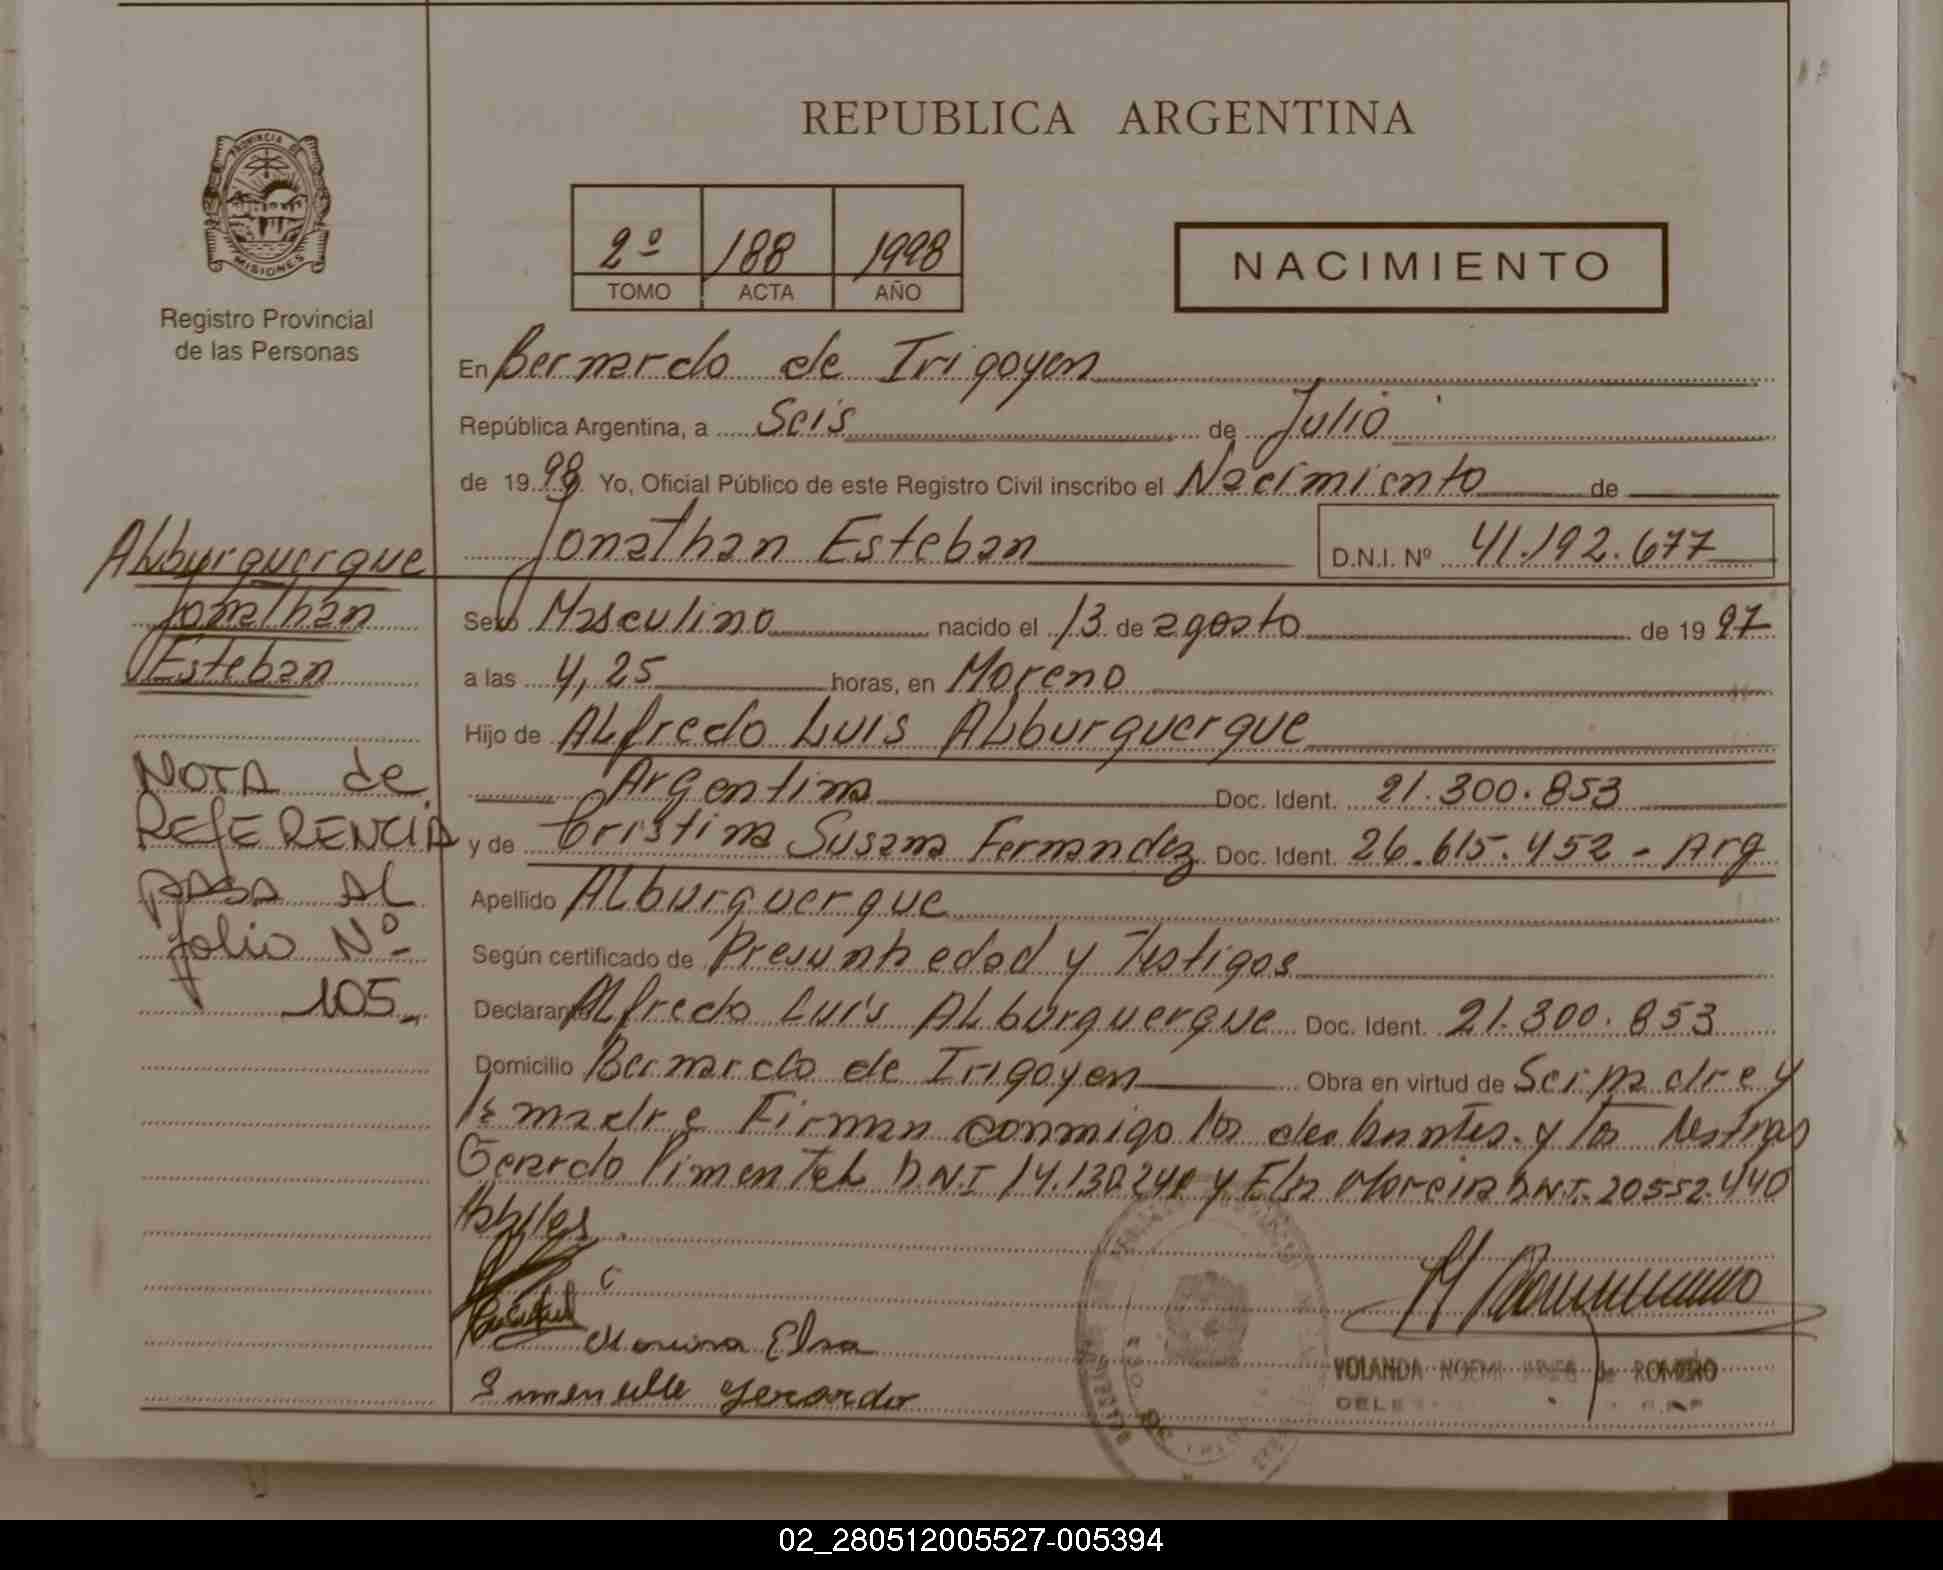 REPUBLICA ARGENTINA
PROVINCIA DE
MISIONES
Registro Provincial
de las Personas
2º 188 1998
TOMO ACTA AÑO
NACIMIENTO
En Bernardo de Irigoyen
República Argentina, a Seis de Julio
de 19 98 Yo, Oficial Público de este Registro Civil inscribo el Nacimiento de
Jonathan Esteban D.N.I. Nº 41.192.677
Alburquerque
Jonathan
Esteban
Sexo Masculino nacido el 13 de agosto de 19 97
a las 4,25 horas, en Moreno
Hijo de Alfredo Luis Alburquerque
Argentina Doc. Ident. 21.300.853
y de Cristina Susana Fernandez Doc. Ident. 26.615.452 - Arg
Apellido Alburquerque
Según certificado de Presunta edad y Testigos
Declarante Alfredo Luis Alburquerque Doc. Ident. 21.300.853
Domicilio Bernardo de Irigoyen Obra en virtud de Ser padre y
la madre Firman conmigo los y los testigos
Gerardo Pimentel D.N.I 14.130.240 y Elsa Moreira D.N.I. 20552.440
Habiles.
NOTA de
REFERENCIA
PASA AL
folio Nº
105_
Moreira Elsa
Gerardo
YOLANDA NOEMI de ROMERO
02_280512005527-005394